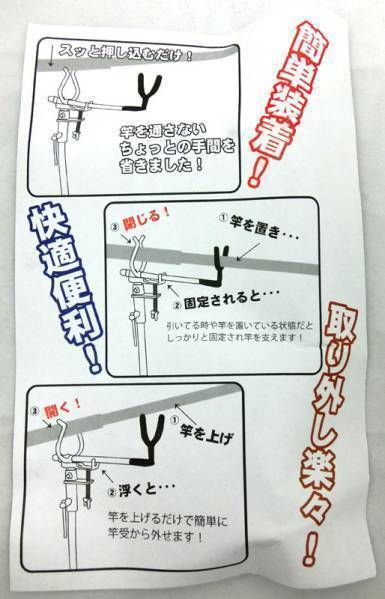 簡単装着!
スッと押し込むだけ!
竿を通さない
ちょっとの手間を
省きました!
快適便利!
③ 閉じる!
① 竿を置き・・・
② 固定されると・・・
引いてる時や竿を置いている状態だと
しっかりと固定され竿を支えます!
取り外し楽々!
③ 開く!
①
竿を上げ
② 浮くと・・・
竿を上げるだけで簡単に
竿受から外せます!